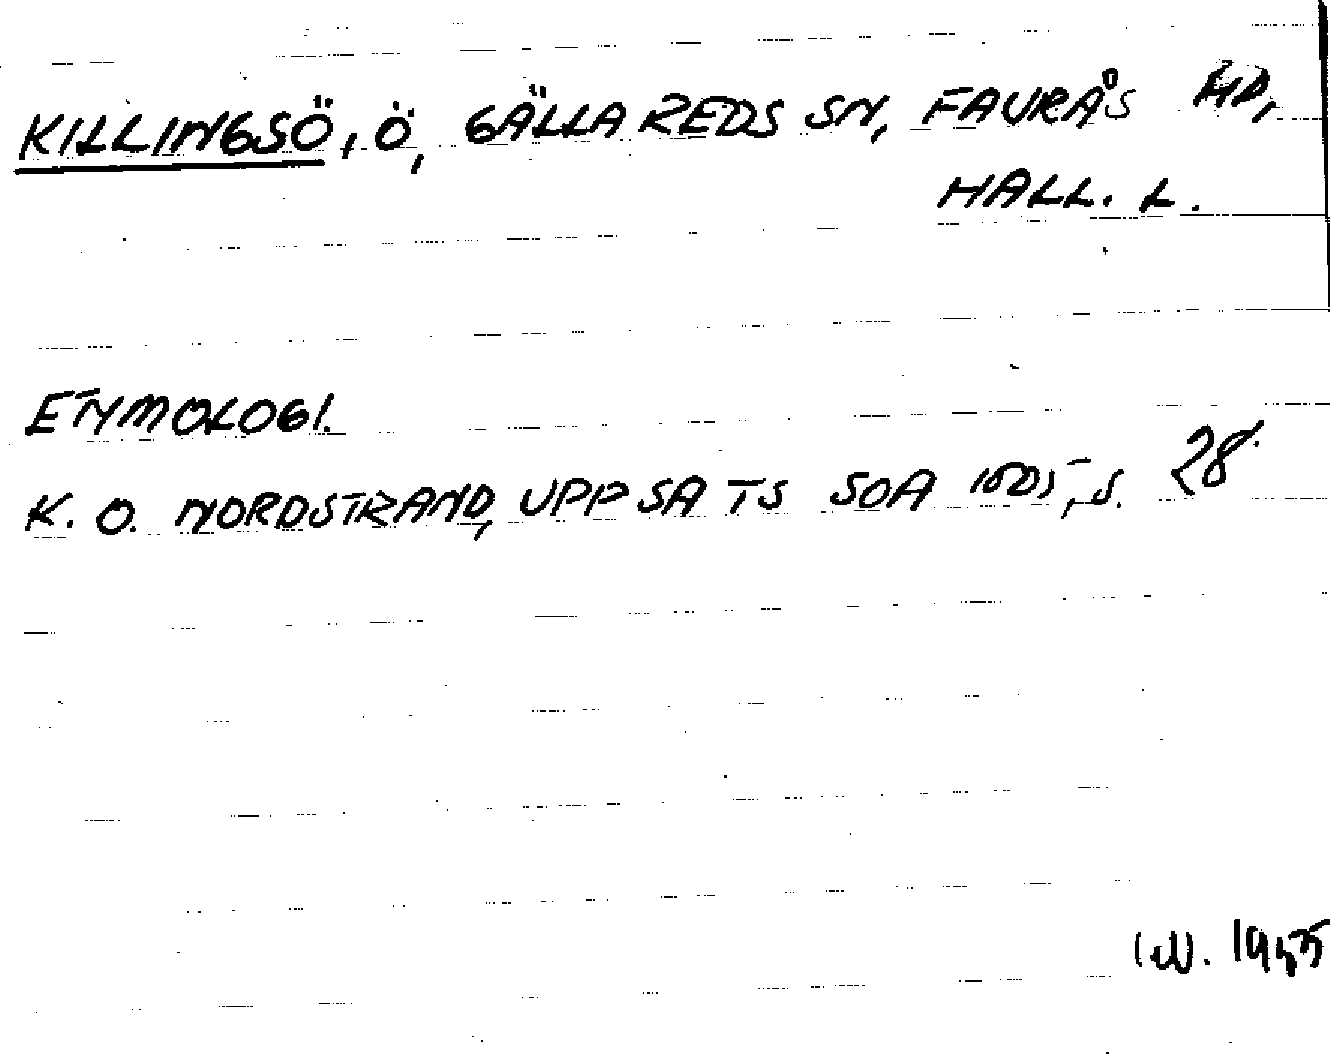 KILLINGSÖ, Ö, GÄLLAREDS SN, FAURÅS HD,
HALL. L.
ETYMOLOGI.
K. O. NORDSTRAND, UPPSATS SOA 1505, S. 28
1945